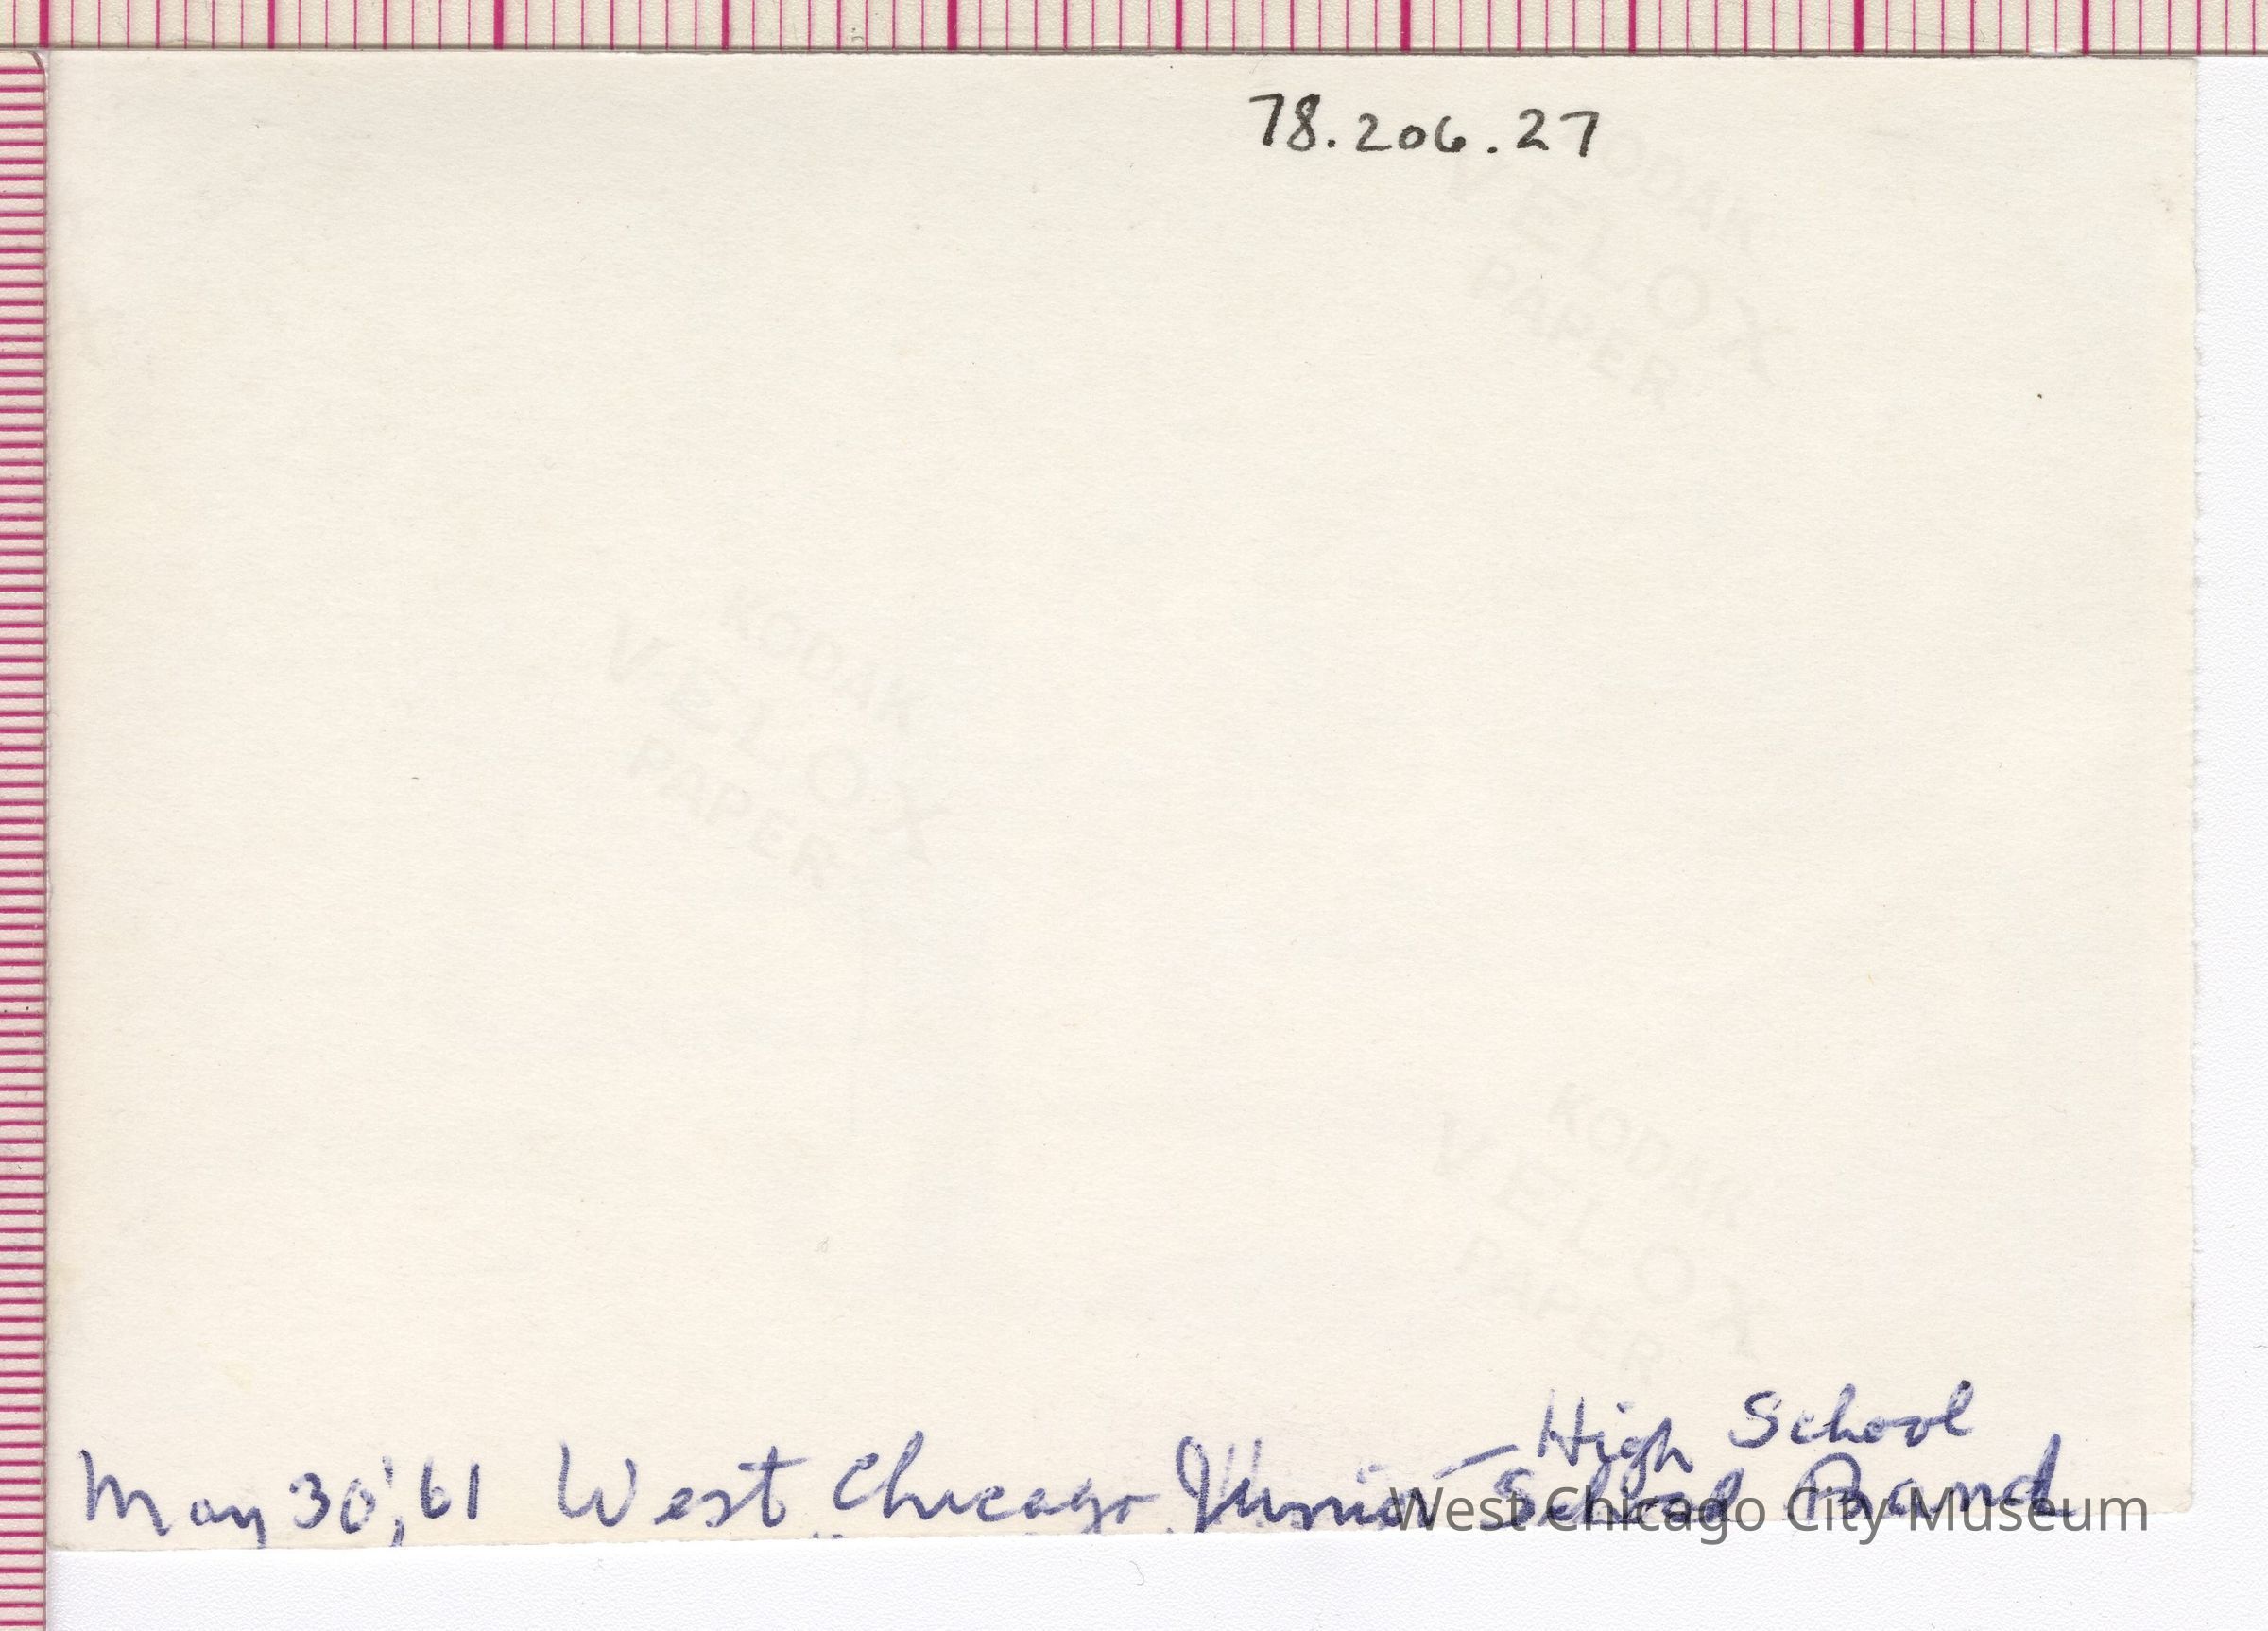 78.206.27
KODAK
VELOX
PAPER
KODAK
VELOX
PAPER
KODAK
VELOX
PAPER
High School
May 30, '61 West Chicago Junior School Band
West Chicago City Museum